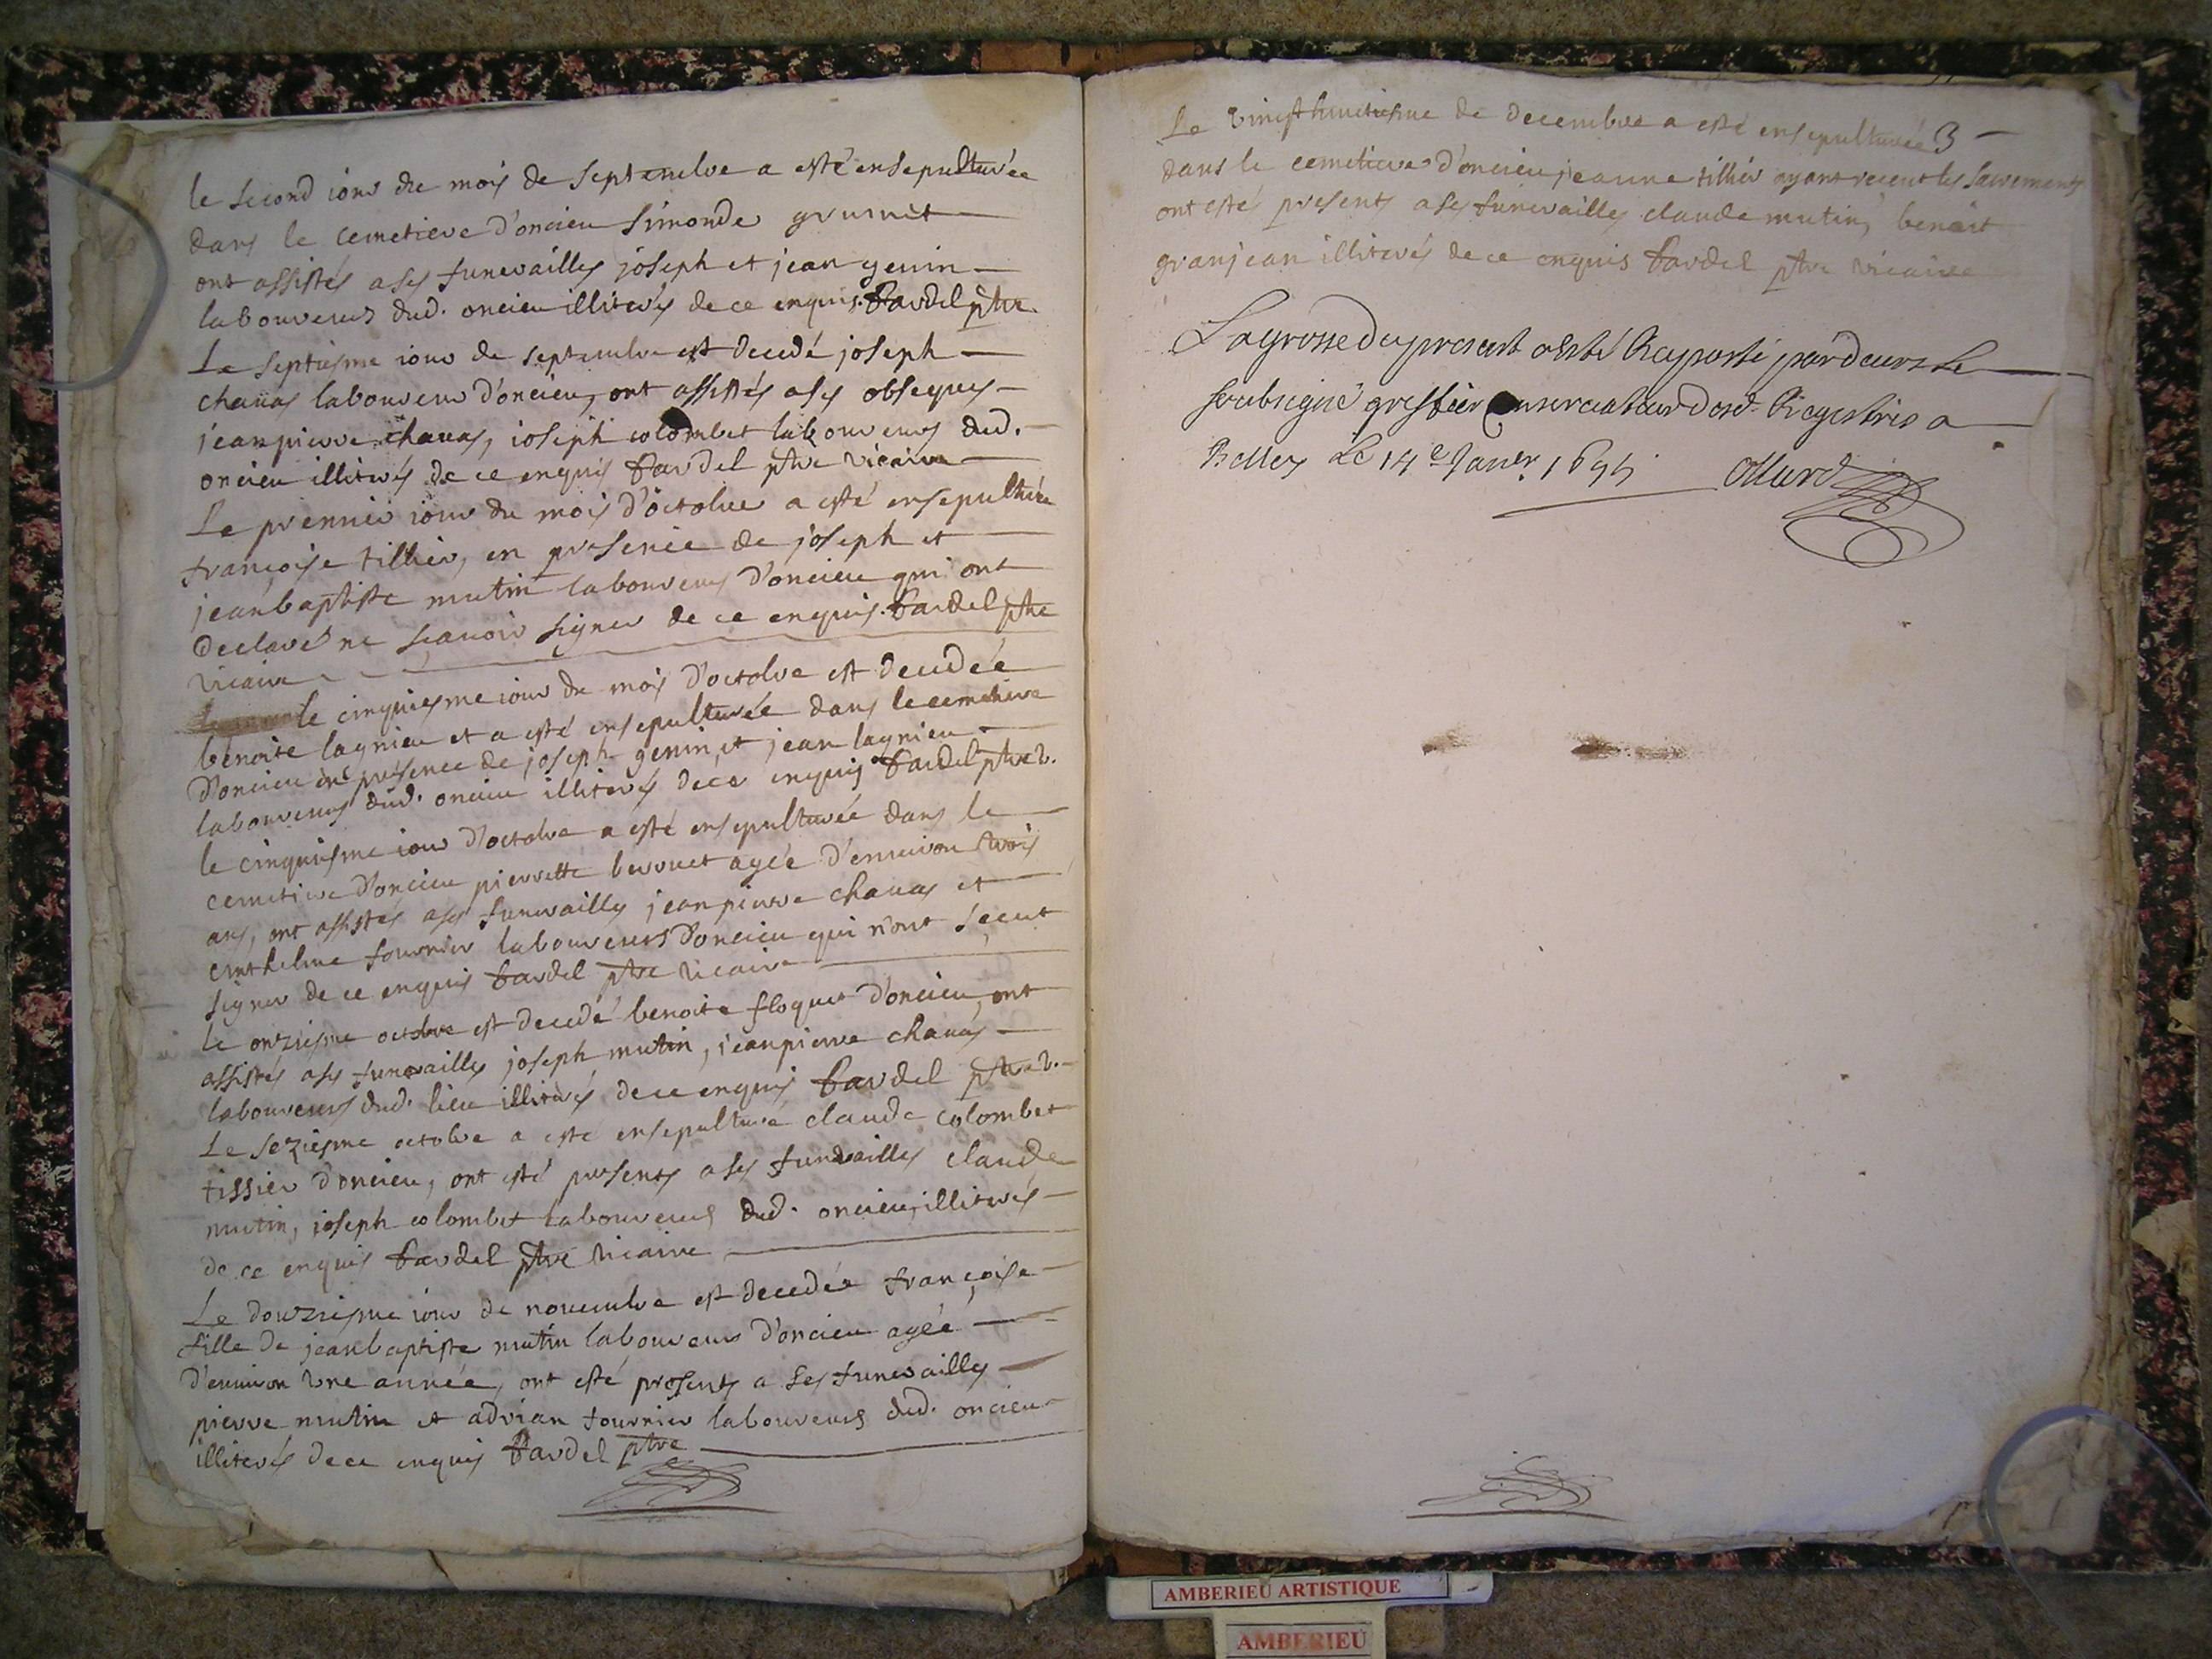 le second iour du mois de septembre a esté ensepulturée
dans le cemetiere d'oncieu simonde grumet
ont assistés a ses funerailles joseph et jean genin
laboureurs dud. oncieu illiterés de ce enquis. Bardel ptre.
Le septiesme iour de septembre est decedé joseph
chanas laboureur d'oncieu, ont assistés a ses obseques
jeanpierre chanas, ioseph colombet laboureurs dud.
oncieu illiterés de ce enquis Bardel ptre vicaire
Le premier iour du mois d'octobre a esté ensepulturée
françoise tillier, en presence de joseph et
jeanbaptiste mutin laboureurs d'oncieu qui ont
declaré ne scauoir signer de ce enquis. Bardel ptre
vicaire
le cinquiesme iour du mois d'octobre est decedée
benoite lagnieu et a esté ensepulturée dans le cemetiere
d'oncieu en presence de joseph genin, et jean lagnieu
laboureurs dud. oncieu illiterés de ce enquis Bardel ptre v.
le cinquiesme iour d'octobre a esté ensepulturée dans le
cemetiere d'oncieu pierrette berrnet agée d'enuiron trois
ans, ont assistés a ses funerailles jeanpierre chanas et
enthelme fournier laboureurs d'oncieu qui n'ont sçeut
signer de ce enquis Bardel ptre vicaire
le onziesme octobre est decedé benoite floquet d'oncieu, ont
assistés a ses funerailles joseph mutin, jeanpierre chanas
laboureurs dud. lieu illiterés de ce enquis Bardel ptre v.
Le seziesme octobre a esté ensepulturé claude colombet
tissier d'oncieu, ont esté presents a ses funerailles claude
mutin, joseph colombet laboureurs dud. oncieu, illiterés
de ce enquis Bardel ptre vicaire
Le douziesme iour de nouembre est decedée françoise
fille de jeanbaptiste mutin laboureur d'oncieu agée
d'enuiron vne année, ont esté presents a ses funerailles
pierre mutin et adrian fournier laboureurs dud. oncieu
illiterés de ce enquis Bardel ptre
3
Le vingthuictiesme de decembre a esté ensepulturée
dans le cemetiere d'oncieu jeanne tillier ayant receut les sacrements
ont estés presents a ses funerailles claude mutin, benoit
granjean illiterés de ce enquis Bardel ptre vicaire
La grosse du present a esté Raportée pardeuers le
soubsigné greffier Conseruateur desd. Registres a
Belley Le 14e Janer. 1695
AMBERIEU ARTISTIQUE
AMBERIEU